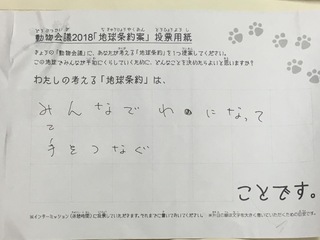 動物会議2018「地球条約案」投票用紙
チョウの「動物会議」に、あなたが考える「地球条約」を1つ提案してください。
この地球でみんなが平和にくらしていくために、どんなことを決めたらよいと思いますか?
わたしの考える「地球条約」は、
みんなでわになって
て
手をつなぐ
ことです。